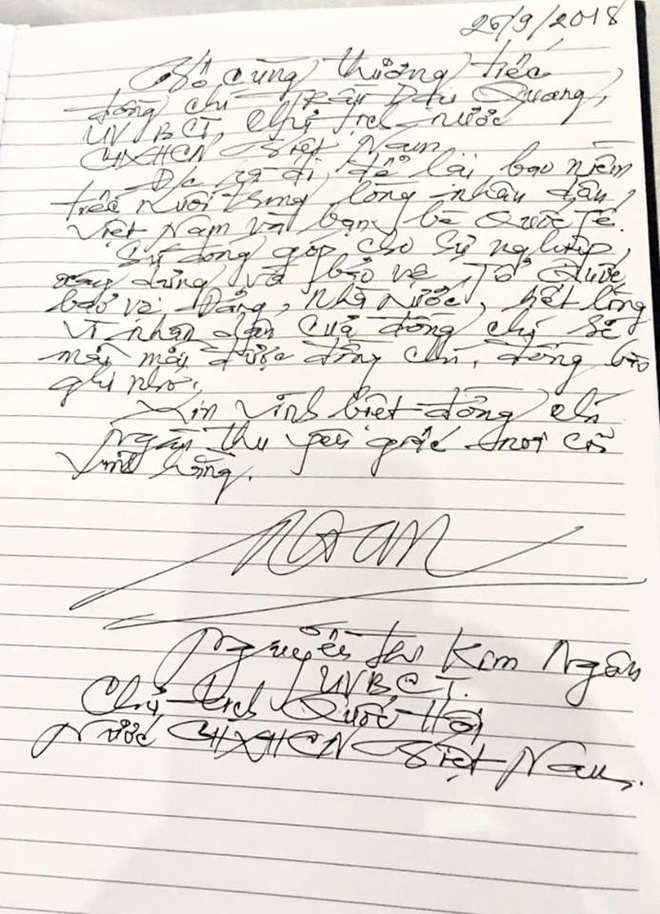 26/9/2018
Vô cùng thương tiếc
đồng chí Trần Đại Quang,
UVBCT, Chủ tịch nước
CHXHCN Việt Nam.
Đ/c ra đi, để lại bao niềm
tiếc nuối trong lòng nhân dân
Việt Nam và bạn bè Quốc tế.
Sự đóng góp cho sự nghiệp
xây dựng và bảo vệ Tổ Quốc,
bảo vệ Đảng, Nhà nước, hết lòng
vì nhân dân của đồng chí sẽ
mãi mãi được đồng chí, đồng bào
ghi nhớ.
Xin vĩnh biệt đồng chí
ngàn thu yên giấc nơi cõi
vĩnh hằng.
Ngân
Nguyễn Thị Kim Ngân
UVBCT.
Chủ tịch Quốc Hội
Nước CHXHCN Việt Nam.